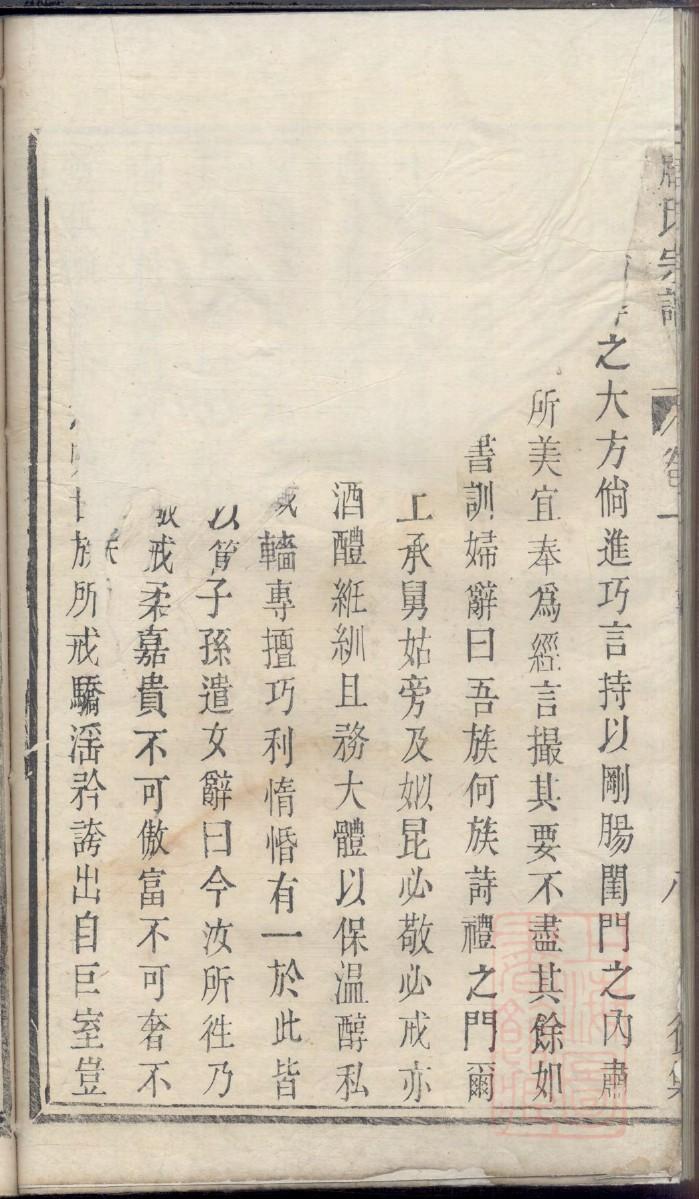 氏宗譜
之大方倘進巧言持以剛腸閨門之內肅
所美宜奉為經言撮其要不盡其餘如
書訓婦辭曰吾族何族詩禮之門爾
上承舅姑旁及姒昆必敬必戒亦
酒醴絍紃且務大體以保溫醇私
轖專擅巧利惰惛有一於此皆
以篤子孫遣女辭曰今汝所徃乃
戒柔嘉貴不可傲富不可奢不
族所戒驕淫矜誇出自巨室豈